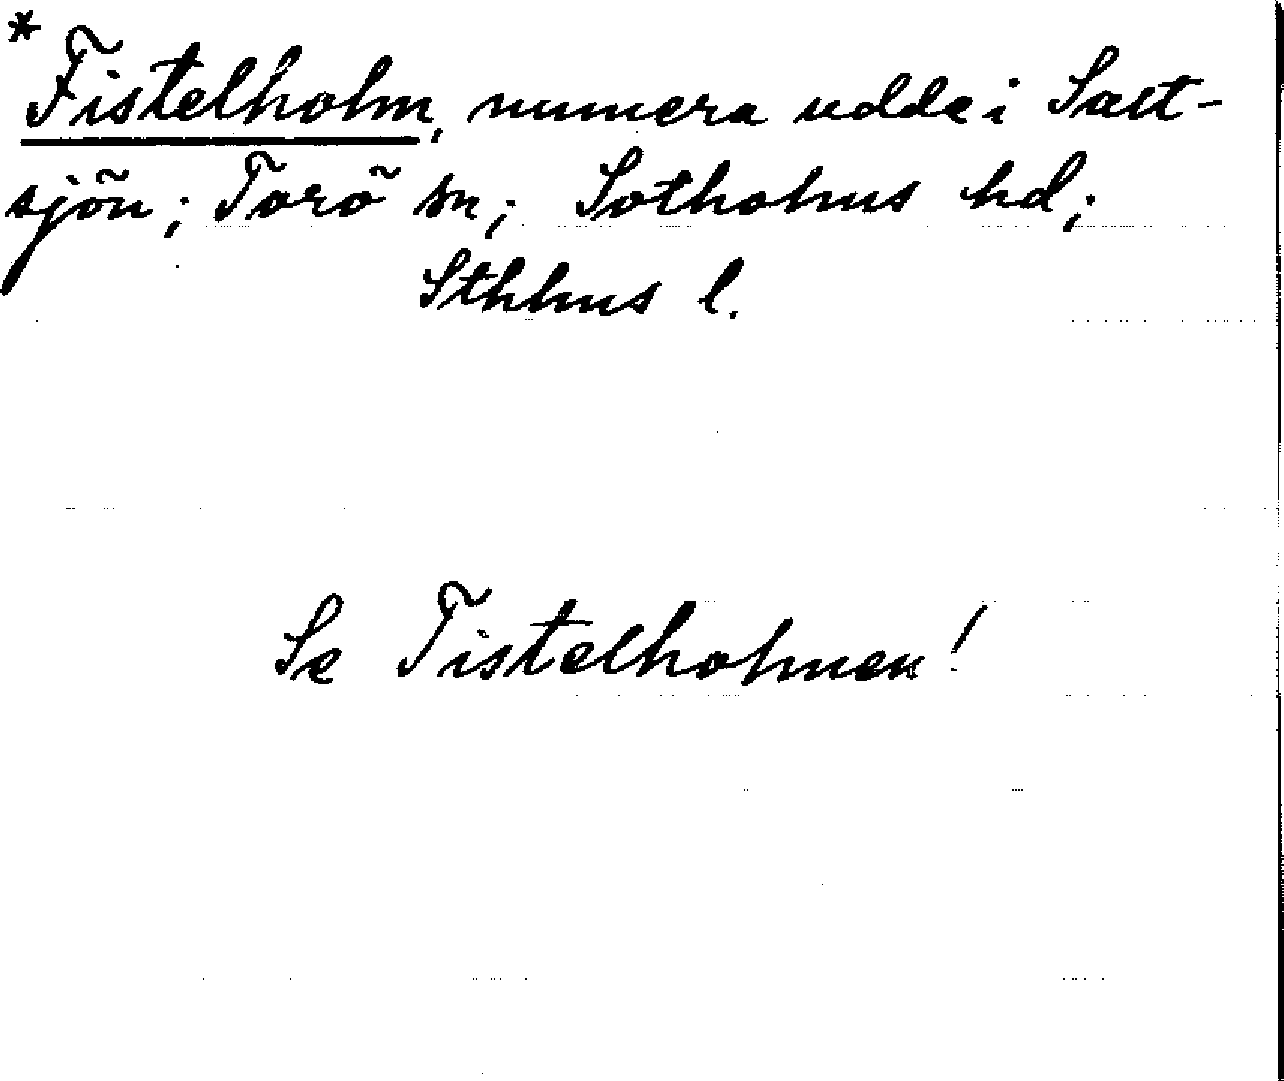 *
Fistelholm, numera udde i Salt-
sjön; Torö sn; Sotholms hd;
Sthlms l.
Se Tistelholmen!